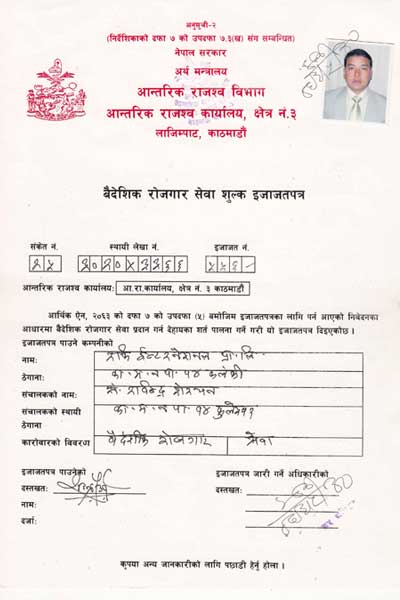 अनुसूची-२
(निर्देशिकाको दफा ७ को उपदफा ७.३(ख) संग सम्बन्धित)
नेपाल सरकार
अर्थ मन्त्रालय
आन्तरिक राजश्व विभाग
आन्तरिक राजश्व कार्यालय, क्षेत्र नं.३
लाजिम्पाट, काठमाडौं
बैदेशिक रोजगार सेवा शुल्क इजाजतपत्र
संकेत नं. स्थायी लेखा नं. इजाजत नं.
आन्तरिक राजश्व कार्यालय: आ.रा.कार्यालय, क्षेत्र नं. ३ काठमाडौं
आर्थिक ऐन, २०६३ को दफा ७ को उपदफा (५) बमोजिम इजाजतपत्रका लागि पर्न आएको निबेदनका
आधारमा बैदेशिक रोजगार सेवा प्रदान गर्न देहायका शर्त पालना गर्ने गरी यो इजाजत दिइएकोछ ।
इजाजतपत्र पाउने कम्पनीको
नाम: इन्टरनेशनल प्रा. लि.
ठेगाना: का. म. न. पा. १४ कलंकी
संचालकको नाम:
संचालकको स्थायी का. म. न. पा. १४
ठेगाना:
कारोवारको बिवरण बैदेशिक रोजगार सेवा
इजाजतपत्र पाउनेको इजाजतपत्र जारी गर्ने अधिकारीको
दस्तखत: दस्तखत:
नाम: नाम:
दर्जा: दर्जा:
कृपया अन्य जानकारीको लागि पछाडी हेर्नु होला ।